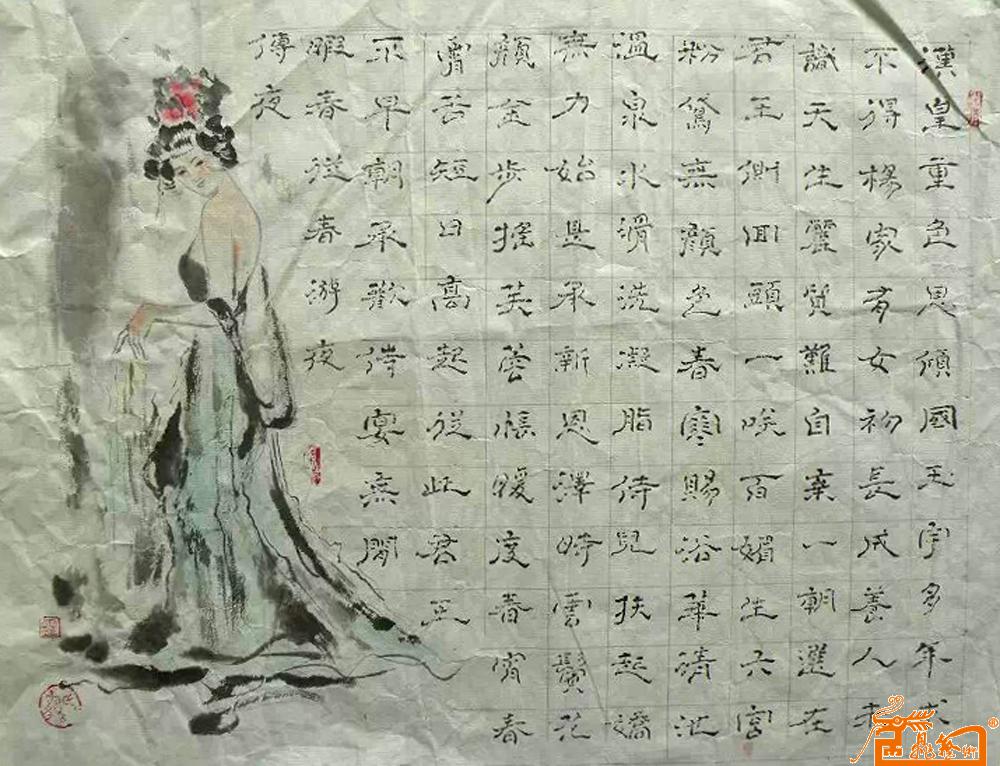 漢皇重色思傾國玉宇多年求
不得楊家有女初長成養人未
識天生麗質難自棄一朝選在
君王側回頭一咲百媚生六宮
粉黛無顏色春寒賜浴華清池
溫泉水滑洗凝脂侍兒扶起嬌
無力始是承新恩澤時雲鬢花
顏金步搖芙蓉帳暖度春宵春
宵苦短日高起從此君王
不早朝承歡侍宴無閒
暇春從春游夜
傳夜